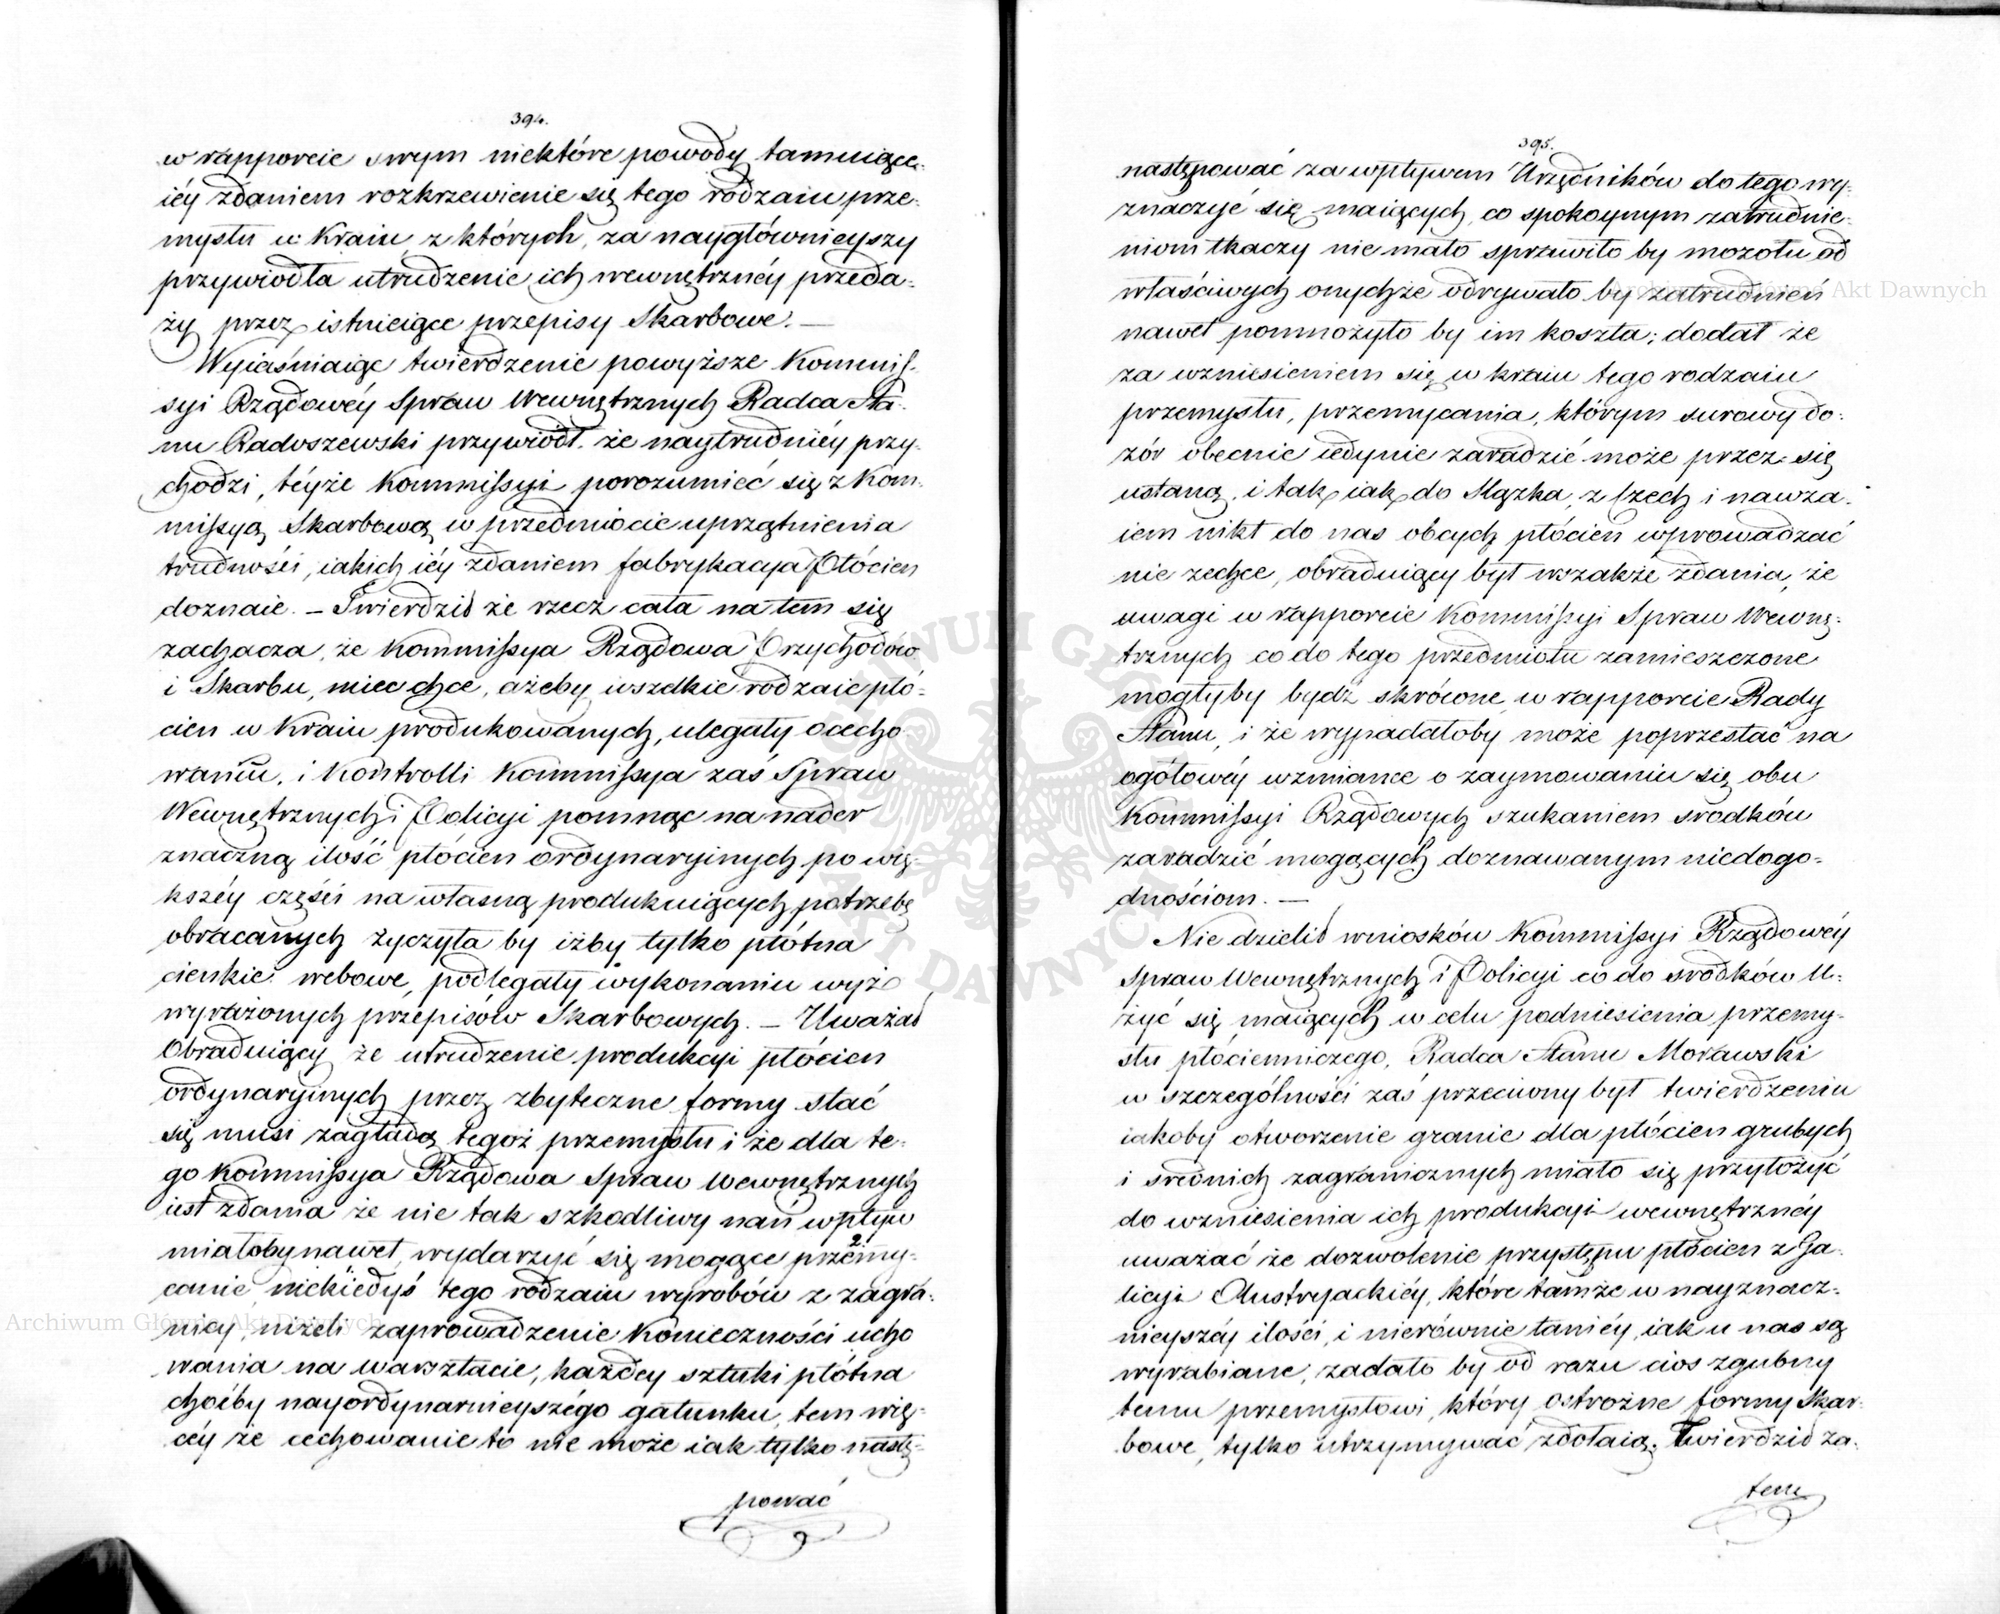 394.
w rapporcie swym niektóre powody tamuiące
iéy zdaniem rozkrzewienie się tego rodzaiu prze-
mysłu w Kraiu, z których, za naygłównieyszy
przywiodła utrudzenie ich wewnętrznéy przeda-
ży przez istnieiące przepisy Skarbowe. —
Wyiaśniaiąc twierdzenie powyższe Kommis-
syi Rządowéy Spraw Wewnętrznych Radca Sta-
nu Radoszewski przywiódł, że naytrudniéy przy-
chodzi, téyże Kommissyi porozumieć się z Kom-
missyą Skarbową w przedmiocie uprzątnienia
trudności, iakich iéy zdaniem fabrykacya Płócien
doznaie. — Twierdził że rzecz cała na tem się
zachacza, że Kommissya Rządowa Przychodów
i Skarbu, miec chce, ażeby wszelkie rodzaie płó-
cien w Kraiu produkowanych, ulegały ocecho
waniu, i Kontrolli Kommissya zaś Spraw
Wewnętrznych i Policyi pomnąc na nader
znaczną ilość płócien ordynaryinych po wię-
kszéy części na własną produkuiących potrzebę
obracanych życzyła by iżby tylko płótna
cienkie webowe, podlegały wykonaniu wyżéy
wyrażonych przepisów Skarbowych. — Uważał
Obraduiący że utrudzenie produkcyi płócien
ordynaryinych przez zbyteczne formy stać
się musi zagładą tegoż przemysłu i że dla te-
go Kommissya Rządowa Spraw Wewnętrznych
iest zdania że nie tak szkodliwy nań wpływ
miałoby nawet wydarzyć się mogące przemy-
canie niekiedyś tego rodzaiu wyrobów z zagra-
nicy, niżeli zaprowadzenie Konieczności cecho
wania na warsztacie, każdey sztuki płótna
choćby nayordynarnieyszégo gatunku, tem wię-
céy że cechowanie to nie może iak tylko nastę-
pować
395.
następować za wpływem Urzędników do tego wy-
znaczyć się maiących, co spokoynym zatrudnie-
niom tkaczy nie mało sprawiło by mozołu od
właściwych onychże odrywało by zatrudnień
nawet pomnożyło by im koszta; dodał że
za wzniesieniem się w kraiu tego rodzaiu
przemysłu, przemycania, którym surowy do-
zór obecnie iedynie zaradzić może przez się
ustaną, i tak iak do Slązka, z Czech i nawza-
iem nikt do nas obcych płócien wprowadzać
nie zechce, obraduiący był wszakże zdania, że
uwagi w rapporcie Kommissyi Spraw Wewnę-
trznych co do tego przedmiotu zamieszczone
mogłyby bydź skrócone, w rapporcie Rady
Stanu, i że wypadałoby może poprzestać na
ogółowéy wzmiance o zaymowaniu się obu
Kommissyi Rządowych szukaniem srodków
zaradzić mogących doznawanym niedogo-
dnościom. —
Nie dzielił wniosków Kommissyi Rządowéy
Spraw Wewnętrznych i Policyi co do srodków u-
żyć się maiących w celu podniesienia przemy-
słu płócienniczego, Radca Stanu Morawski
w szczególności zaś przeciwny był twierdzeniu
iakoby otworzenie granic dla płócien grubych
i srednich zagranicznych miało się przyłożyć
do wzniesienia ich produkcyi wewnętrznéy
uważać że dozwolenie przystępu płócien z Ga-
licyi Austryackiéy, które tamże w nayznacz-
nieyszéy ilości, i nierównie taniéy, iak u nas są
wyrabiane, zadało by od razu cios zgubny
temu przemysłowi, który ostrożne formy Skar-
bowe, tylko utrzymywać zdołaią. Twierdził za-
tem
Archiwum Główne Akt Dawnych
Archiwum Główne Akt Dawnych
ARCHIWUM GŁÓWNE AKT DAWNYCH